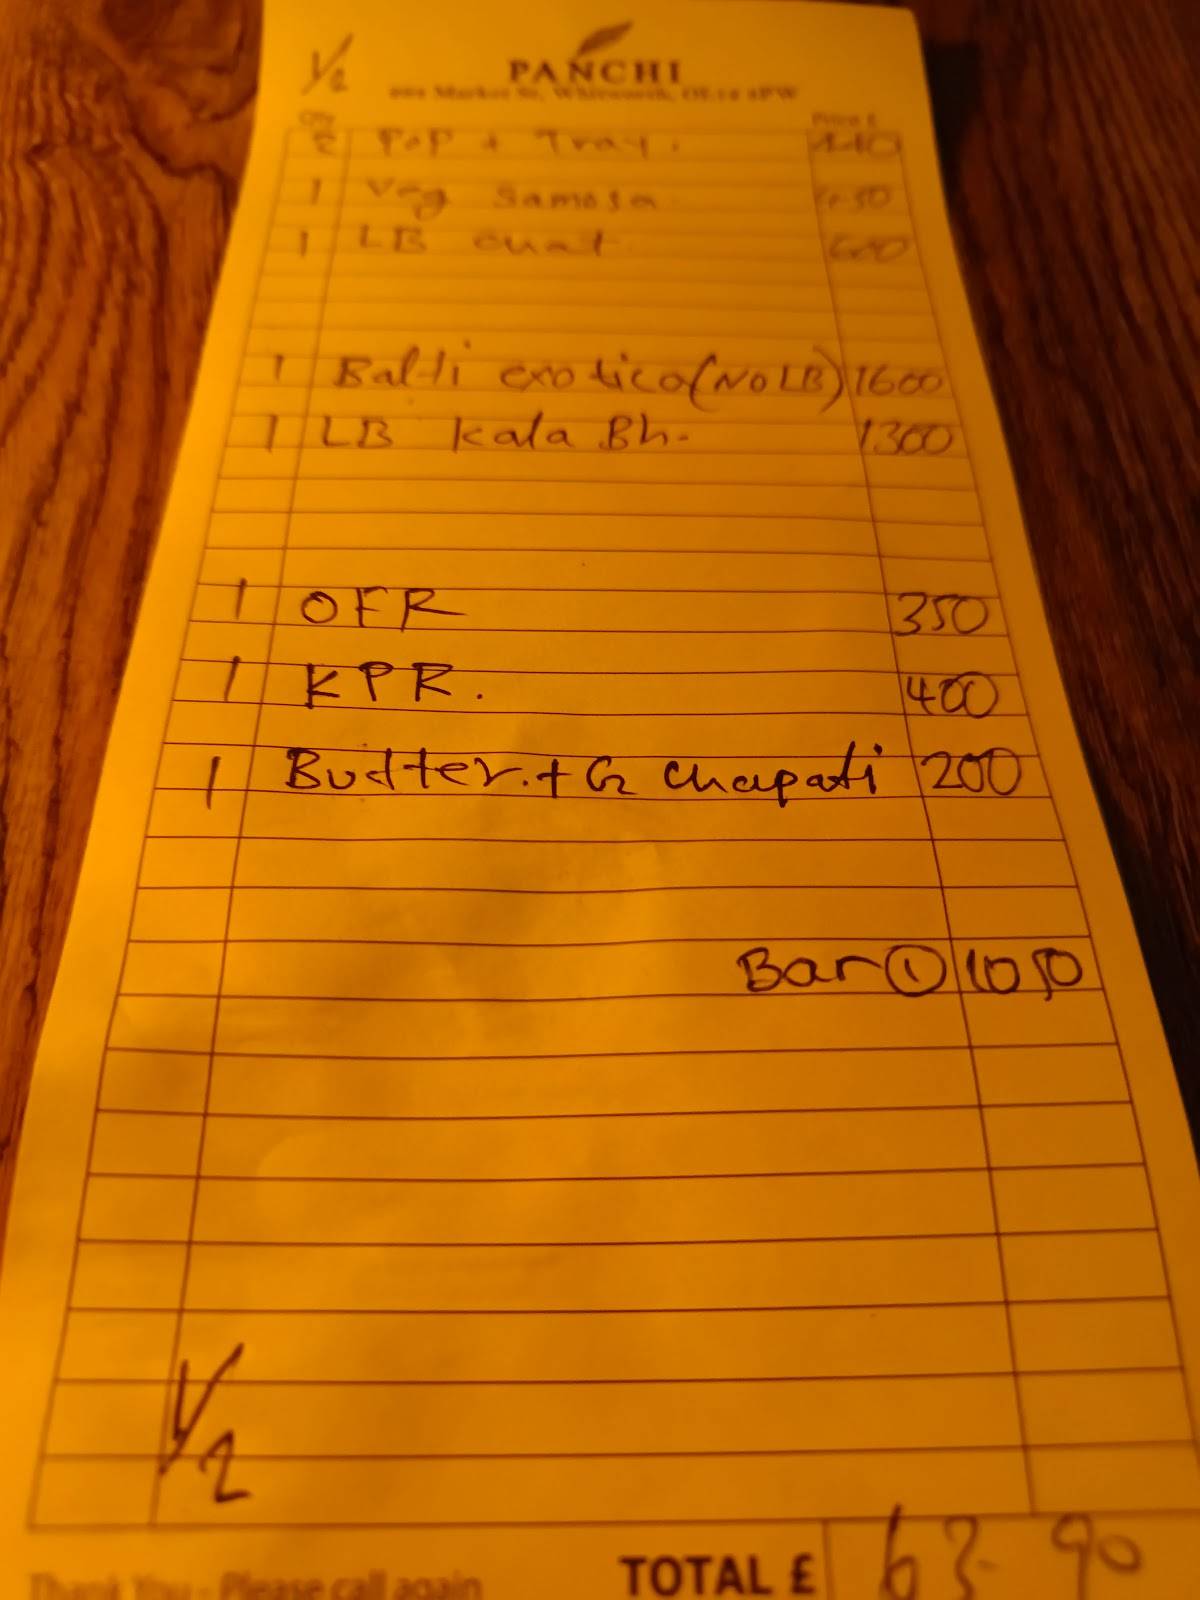 1/2
PANCHI
Market St, Whitworth,
Qty Price £
2 Pop + Tray. 440
1 Veg Samosa 450
1 LB Chat 600
1 Balti exotica (NO LB) 1600
1 LB Kala Bh. 1300
1 OFR 350
1 KPR. 400
1 Butter. + G Chapati 200
Bar ① 1050
1/2
TOTAL £ 63-90
Thank You - Please call again